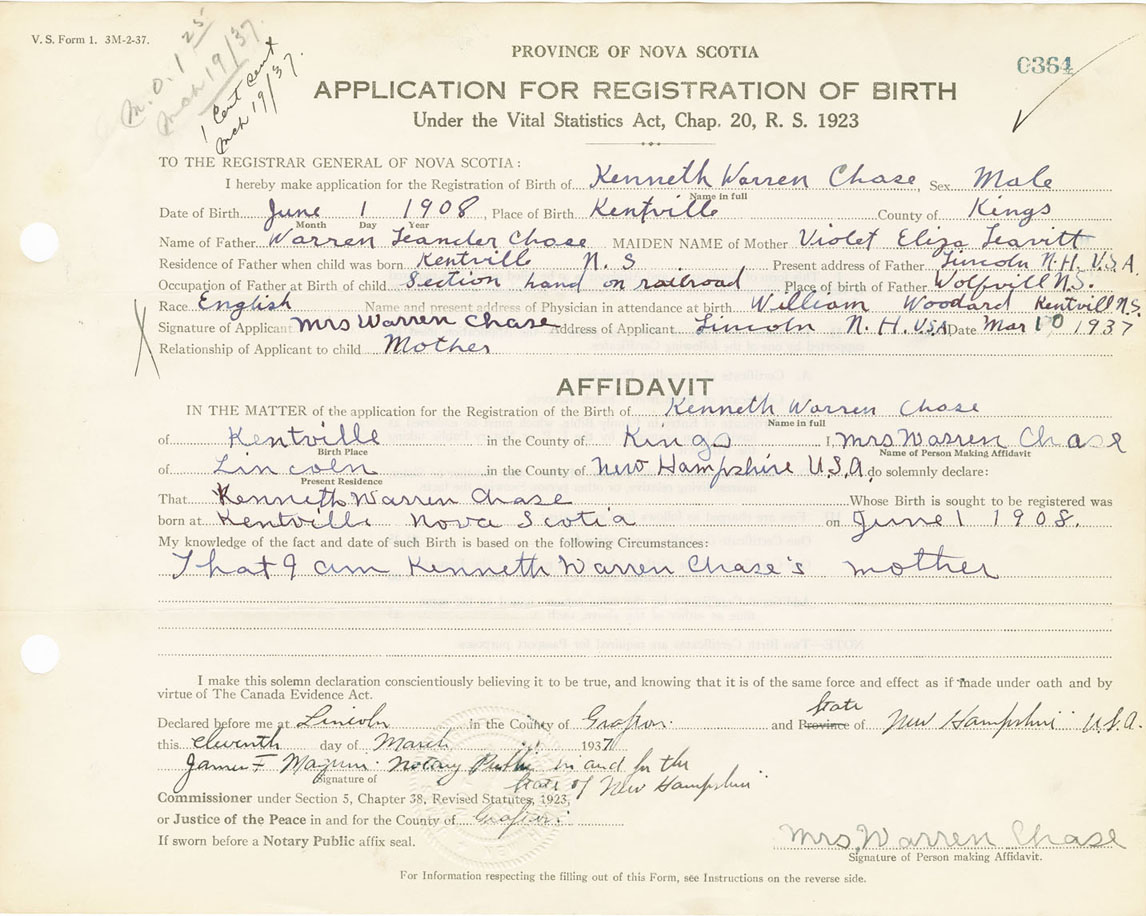 V. S. Form 1. 3M-2-37.
M.O. 1 25
Mch 19/37
1 Cert sent
Mch 19/37.
PROVINCE OF NOVA SCOTIA
0364
APPLICATION FOR REGISTRATION OF BIRTH
Under the Vital Statistics Act, Chap. 20, R. S. 1923
TO THE REGISTRAR GENERAL OF NOVA SCOTIA:
I hereby make application for the Registration of Birth of Kenneth Warren Chase Sex Male
Name in full
Date of Birth June 1 1908, Place of Birth Kentville County of Kings
Month Day Year
Name of Father Warren Leander Chase MAIDEN NAME of Mother Violet Eliza Leavitt
Residence of Father when child was born Kentville N. S Present address of Father Lincoln N.H. U.S.A.
Occupation of Father at Birth of child Section hand on railroad Place of birth of Father Wolfvill N.S.
Race English Name and present address of Physician in attendance at birth William Woodard Kentvill N.S.
Signature of Applicant Mrs Warren Chase Address of Applicant Lincoln N.H. USA Date Mar 10 1937
Relationship of Applicant to child Mother
AFFIDAVIT
IN THE MATTER of the application for the Registration of the Birth of Kenneth Warren Chase
Name in full
of Kentville in the County of Kings I, Mrs Warren Chase
Birth Place Name of Person Making Affidavit
of Lincoln in the County of New Hampshire U.S.A. do solemnly declare:
Present Residence
That Kenneth Warren Chase Whose Birth is sought to be registered was
born at Kentvill Nova Scotia on June 1 1908.
My knowledge of the fact and date of such Birth is based on the following Circumstances:
That I am Kenneth Warren Chase's mother
I make this solemn declaration conscientiously believing it to be true, and knowing that it is of the same force and effect as if made under oath and by
virtue of The Canada Evidence Act.
Declared before me at Lincoln in the County of Grafton and Province State of New Hampshire U.S.A.
this eleventh day of March 1937
James F Notary Public in and for the
Signature of State of New Hampshire
Commissioner under Section 5, Chapter 38, Revised Statutes, 1923,
or Justice of the Peace in and for the County of Grafton
If sworn before a Notary Public affix seal.
Mrs, Warren Chase
Signature of Person making Affidavit.
For Information respecting the filling out of this Form, see Instructions on the reverse side.